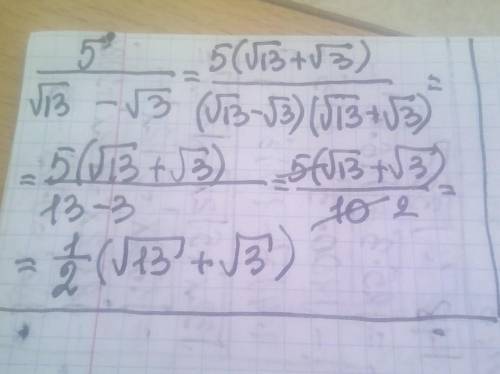 5/(√13 - √3) = 5(√13 + √3)/((√13 - √3)(√13 + √3)) =
= 5(√13 + √3)/(13 - 3) = 5(√13 + √3)/(10 2) =
= 1/2 (√13 + √3)